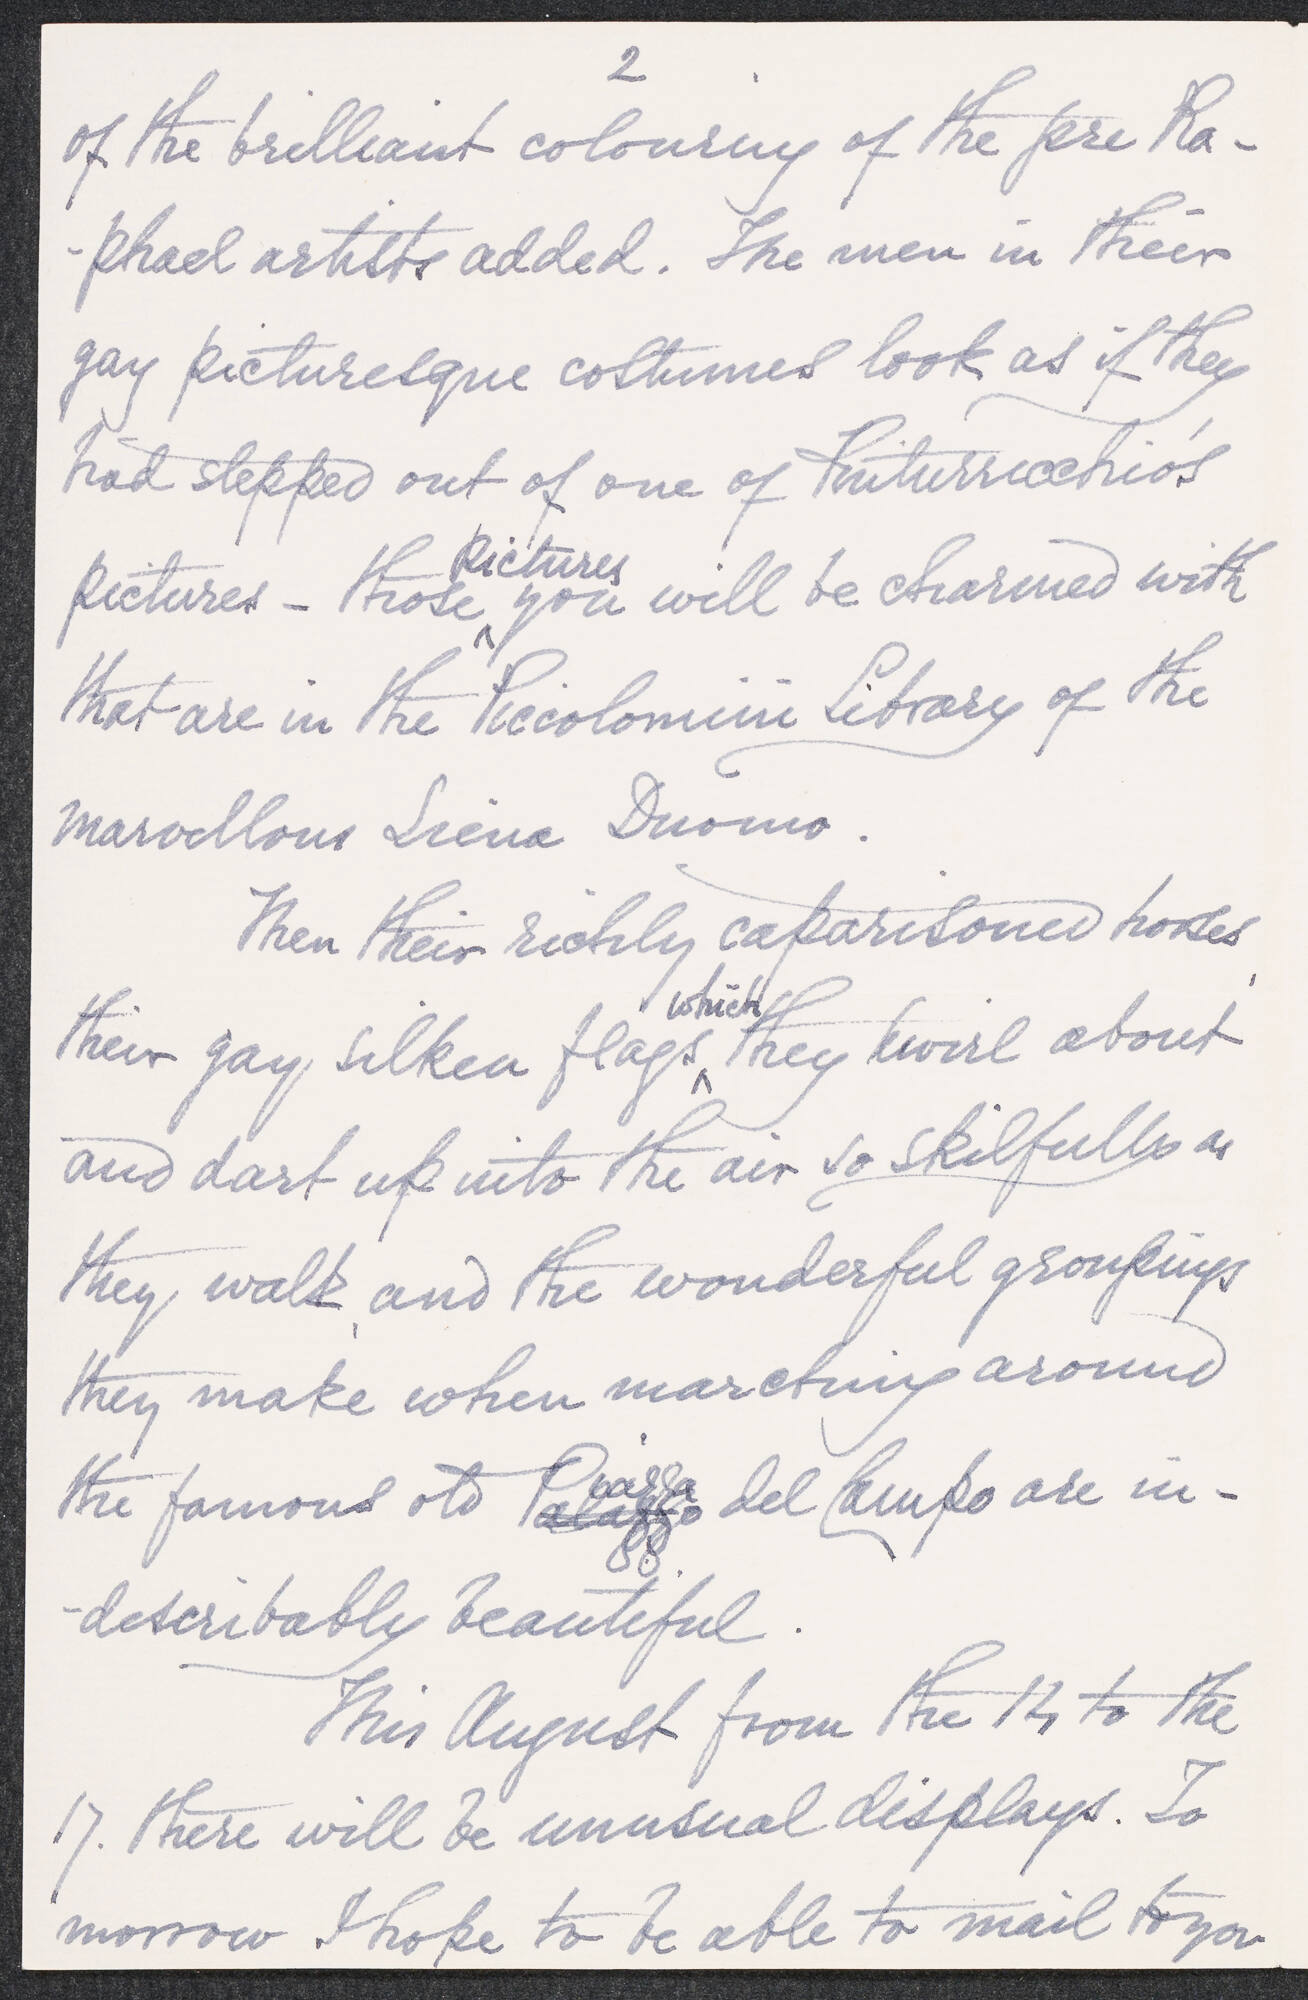 2
of the brilliant colouring of the pre Ra-
-phael artists added. The men in their
gay picturesque costumes look as if they
had stepped out of one of Pinturricchio's
pictures - those pictures you will be charmed with
that are in the Piccolomini Library of the
marvellous Siena Duomo.
Then their richly caparisoned horses,
their gay silken flags which they twirl about
and dart up into the air so skilfully as
they walk, and the wonderful groupings
they make when marching around
the famous old Piazza del Campo are in-
-describably beautiful.
This August from the 14 to the
17. there will be unusual displays. To
morrow I hope to be able to mail to you